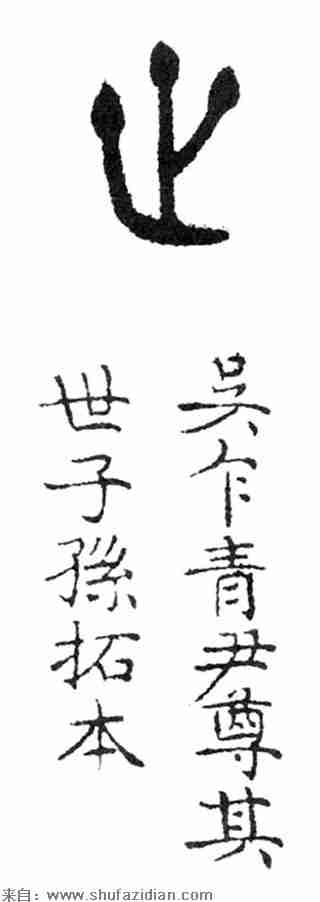 世
吴乍青尹尊其
世子孫拓本
来自：www.shufazidian.com